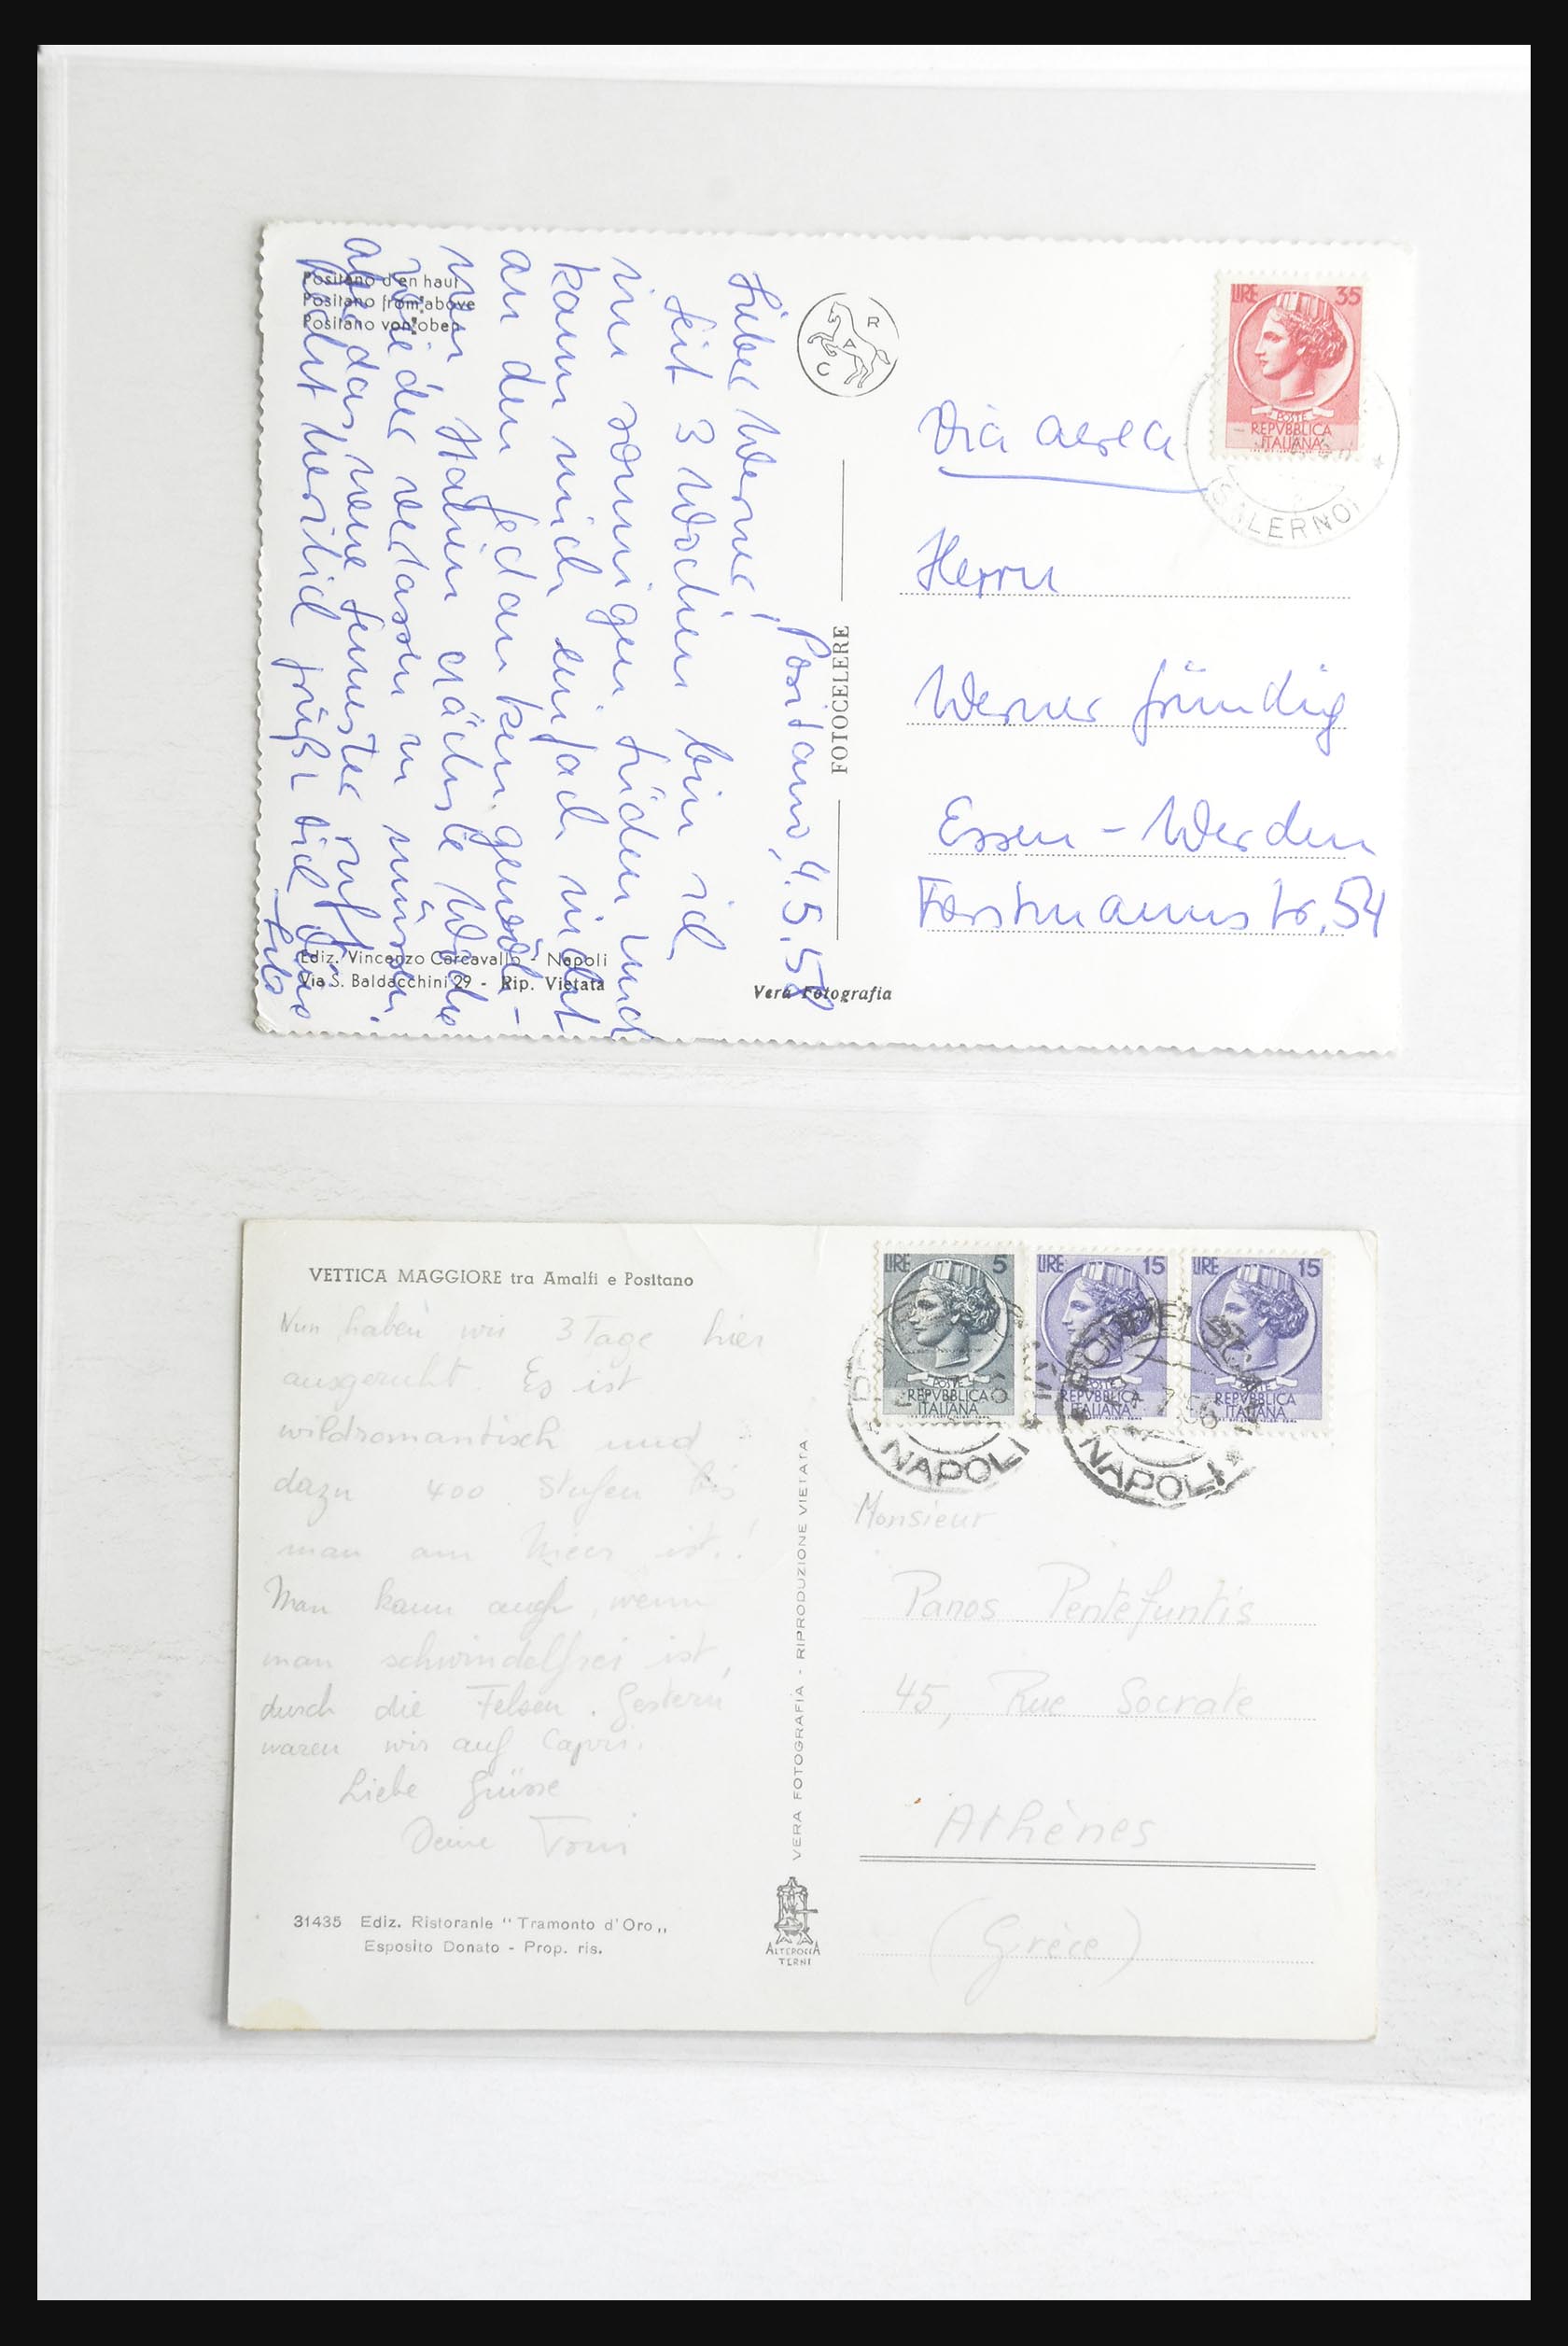 Positano d'en haut
Positano from above
Positano von oben
Positano, 4.5.58
Lieber Werner!
Seit 3 Wochen bin ich
im sonnigen Süden und
kann mich einfach nicht
an den Gedanken gewöh-
nen Italien nächste Woche
wieder verlassen zu müssen.
aber das neue Semester ruft
herzlich grüßt Dich
Ediz. Vincenzo Carcavallo - Napoli
Via S. Baldacchini 29 - Rip. Vietata
Vera Fotografia
FOTOCELERE
R
A
C
LIRE 35
POSTE
REPVBBLICA
ITALIANA
(SALERNO)
Via aerea
Herrn
Werner Gründig
Essen - Werden
Forstmannstr. 54
VETTICA MAGGIORE tra Amalfi e Positano
Nun haben wir 3 Tage hier
ausgeruht. Es ist
wildromantisch und
dazu 400 Stufen bis
man am Meer ist.!
Man kann auch, wenn
man schwindelfrei ist,
durch die Felsen. Gestern
waren wir auf Capri.
Liebe Grüsse
Deine Toni
31435 Ediz. Ristorante "Tramonto d'Oro„
Esposito Donato - Prop. ris.
VERA FOTOGRAFIA - RIPRODUZIONE VIETATA
ALTEROCCA
TERNI
LIRE 5
POSTE
REPVBBLICA
ITALIANA
LIRE 15
POSTE
REPVBBLICA
ITALIANA
LIRE 15
POSTE
REPVBBLICA
ITALIANA
NAPOLI
POMPEI SCAVI
NAPOLI
Monsieur
Panos Pentefuntis
45, Rue Socrate
Athènes
(Grèce)